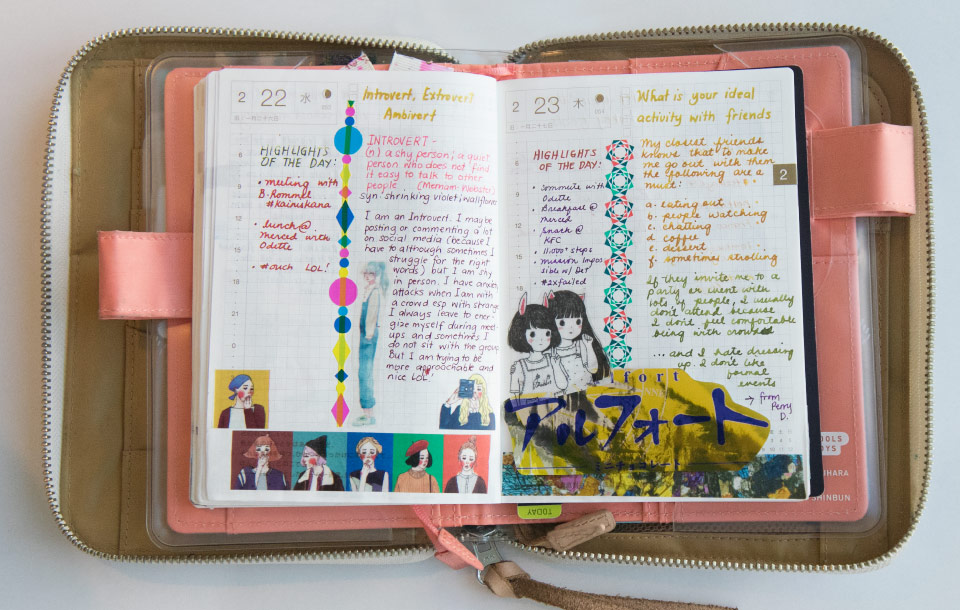 2 22 水
Introvert, Extrover?
Ambivert
HIGHLIGHTS
OF THE DAY:
• meeting with
B. Rommel
#kainuskana
• lunch @
Merced with
Odette
• #ouch LOL!
INTROVERT -
(n) a shy person; a quiet
person who does not find
it easy to talk to other
people. (Merriam-Webster)
syn: shrinking violet, wallflower
I am an Introvert. I may be
posting or commenting a lot
on social media (because I
have to although sometimes I
struggle for the right
words) but I am shy
in person. I have
attacks when I am with
a crowd esp with
I always leave to ener-
gize myself during meet
ups and sometimes I
do not sit with the group
But I am trying to be
more approachable and
nice LOL
2 23 木
What is your ideal
activity with friends
HIGHLIGHTS
OF THE DAY:
• with
Odette
Breakfast @
Merced
• Snack @
KFC
• 11,000+ steps
• Mission Impos
sible w/ Det
• #2xfailed
My closest friends
knows that to make
me go out with them
the following are a
must:
a. eating out
b. people watching
c. chatting
d. coffee
e. dessert
f. sometimes strolling
If they invite me to a
party or event with
lots of people, I usually
don't attend because
I don't feel comfortable
being with crowd
... and I hate dressing
up. I don't like
formal
events
→ from
Perry
D.
2
fort
アルフォート
TODAY